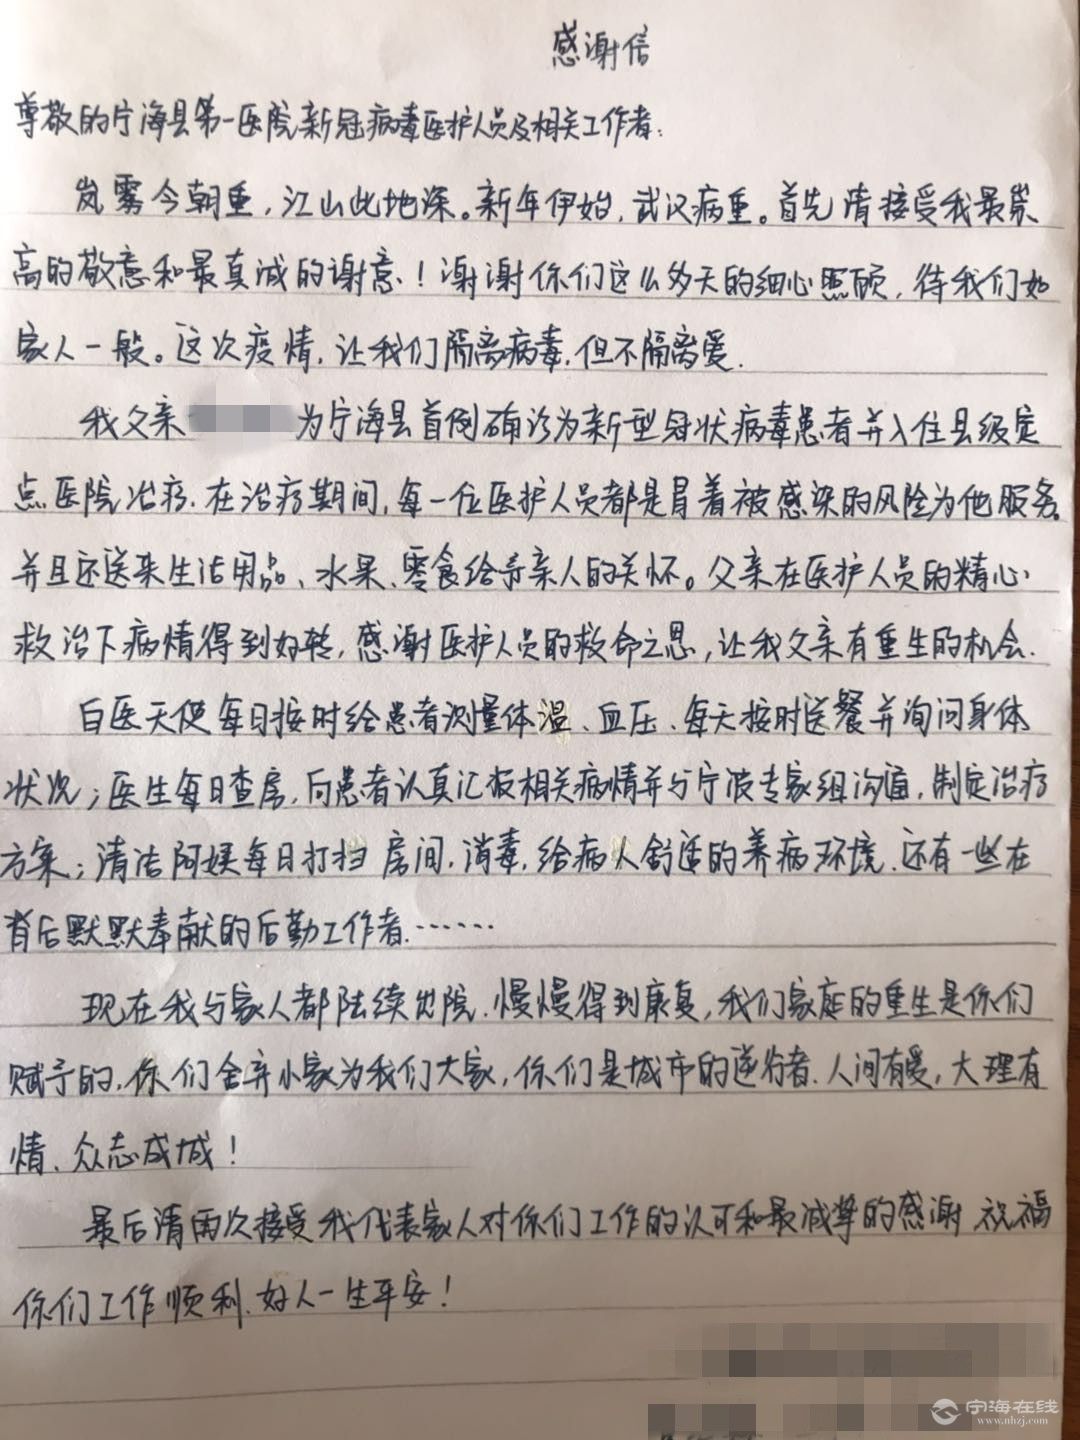 感谢信
尊敬的宁海县第一医院新冠病毒医护人员及相关工作者:
岚雾今朝重,江山此地深。新年伊始,武汉病重。首先请接受我最崇
高的敬意和最真诚的谢意!谢谢你们这么多天的细心照顾,待我们如
家人一般。这次疫情,让我们隔离病毒,但不隔离爱.
我父亲 为宁海县首例确诊为新型冠状病毒患者并入住县级定
点医院治疗.在治疗期间,每一位医护人员都是冒着被感染的风险为他服务。
并且还送来生活用品、水果、零食给予亲人的关怀。父亲在医护人员的精心
救治下病情得到好转,感谢医护人员的救命之恩,让我父亲有重生的机会.
白医天使每日按时给患者测量体温、血压、每天按时送餐并询问身体
状况;医生每日查房,向患者认真汇报相关病情并与宁波专家组沟通,制定治疗
方案;清洁阿姨每日打扫房间,消毒,给病人舒适的养病环境.还有一些在
背后默默奉献的后勤工作者.……
现在我与家人都陆续出院,慢慢得到康复,我们家庭的重生是你们
赋予的,你们舍弃小家为我们大家,你们是城市的逆行者.人间有爱,大理有
情、众志成城!
最后请再次接受我代表家人对你们工作的认可和最诚挚的感谢 祝福
你们工作顺利.好人一生平安!
宁海在线
www.nhzj.com